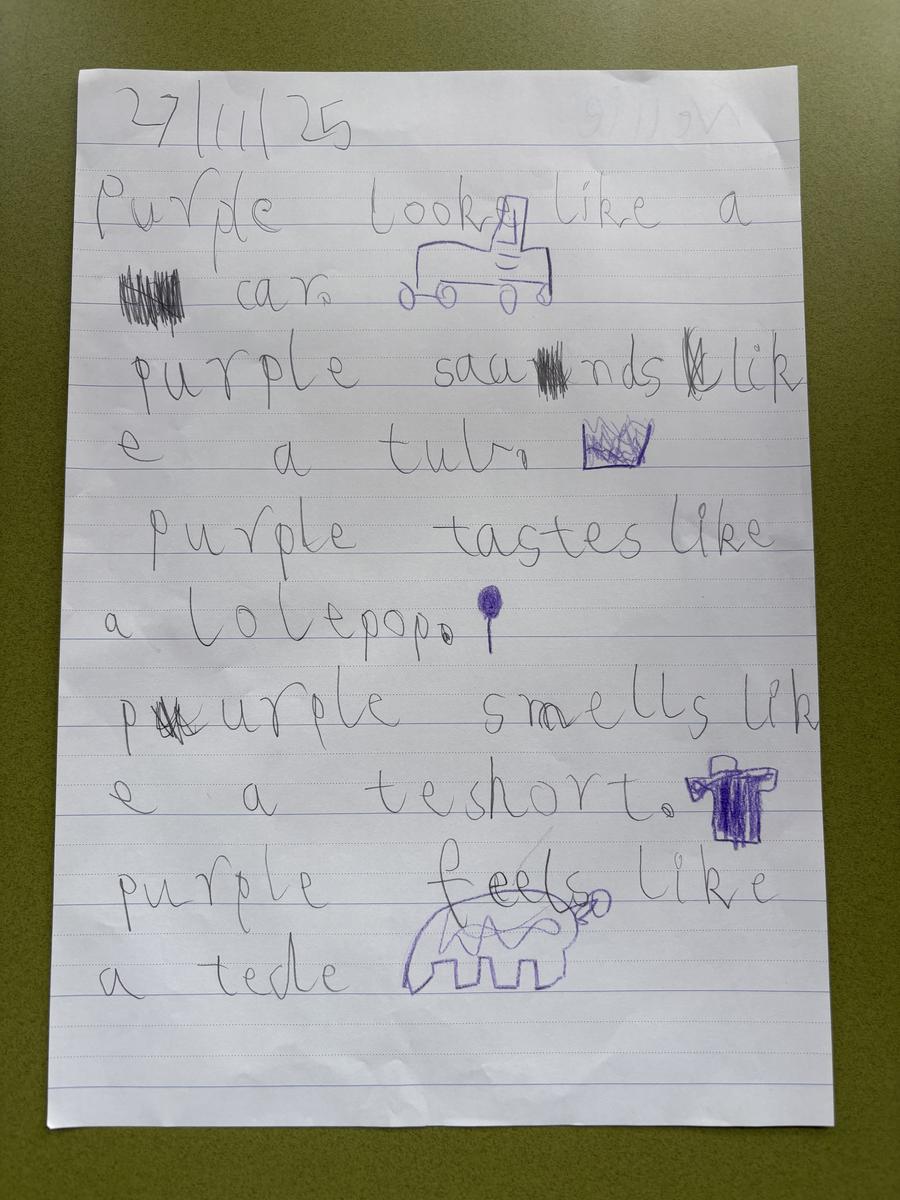 27/11/25
Purple looks like a
car.
purple saunds lik
e a tub.
purple tastes like
a lolepop.
purple smells lik
e a teshort.
purple feels like
a tede